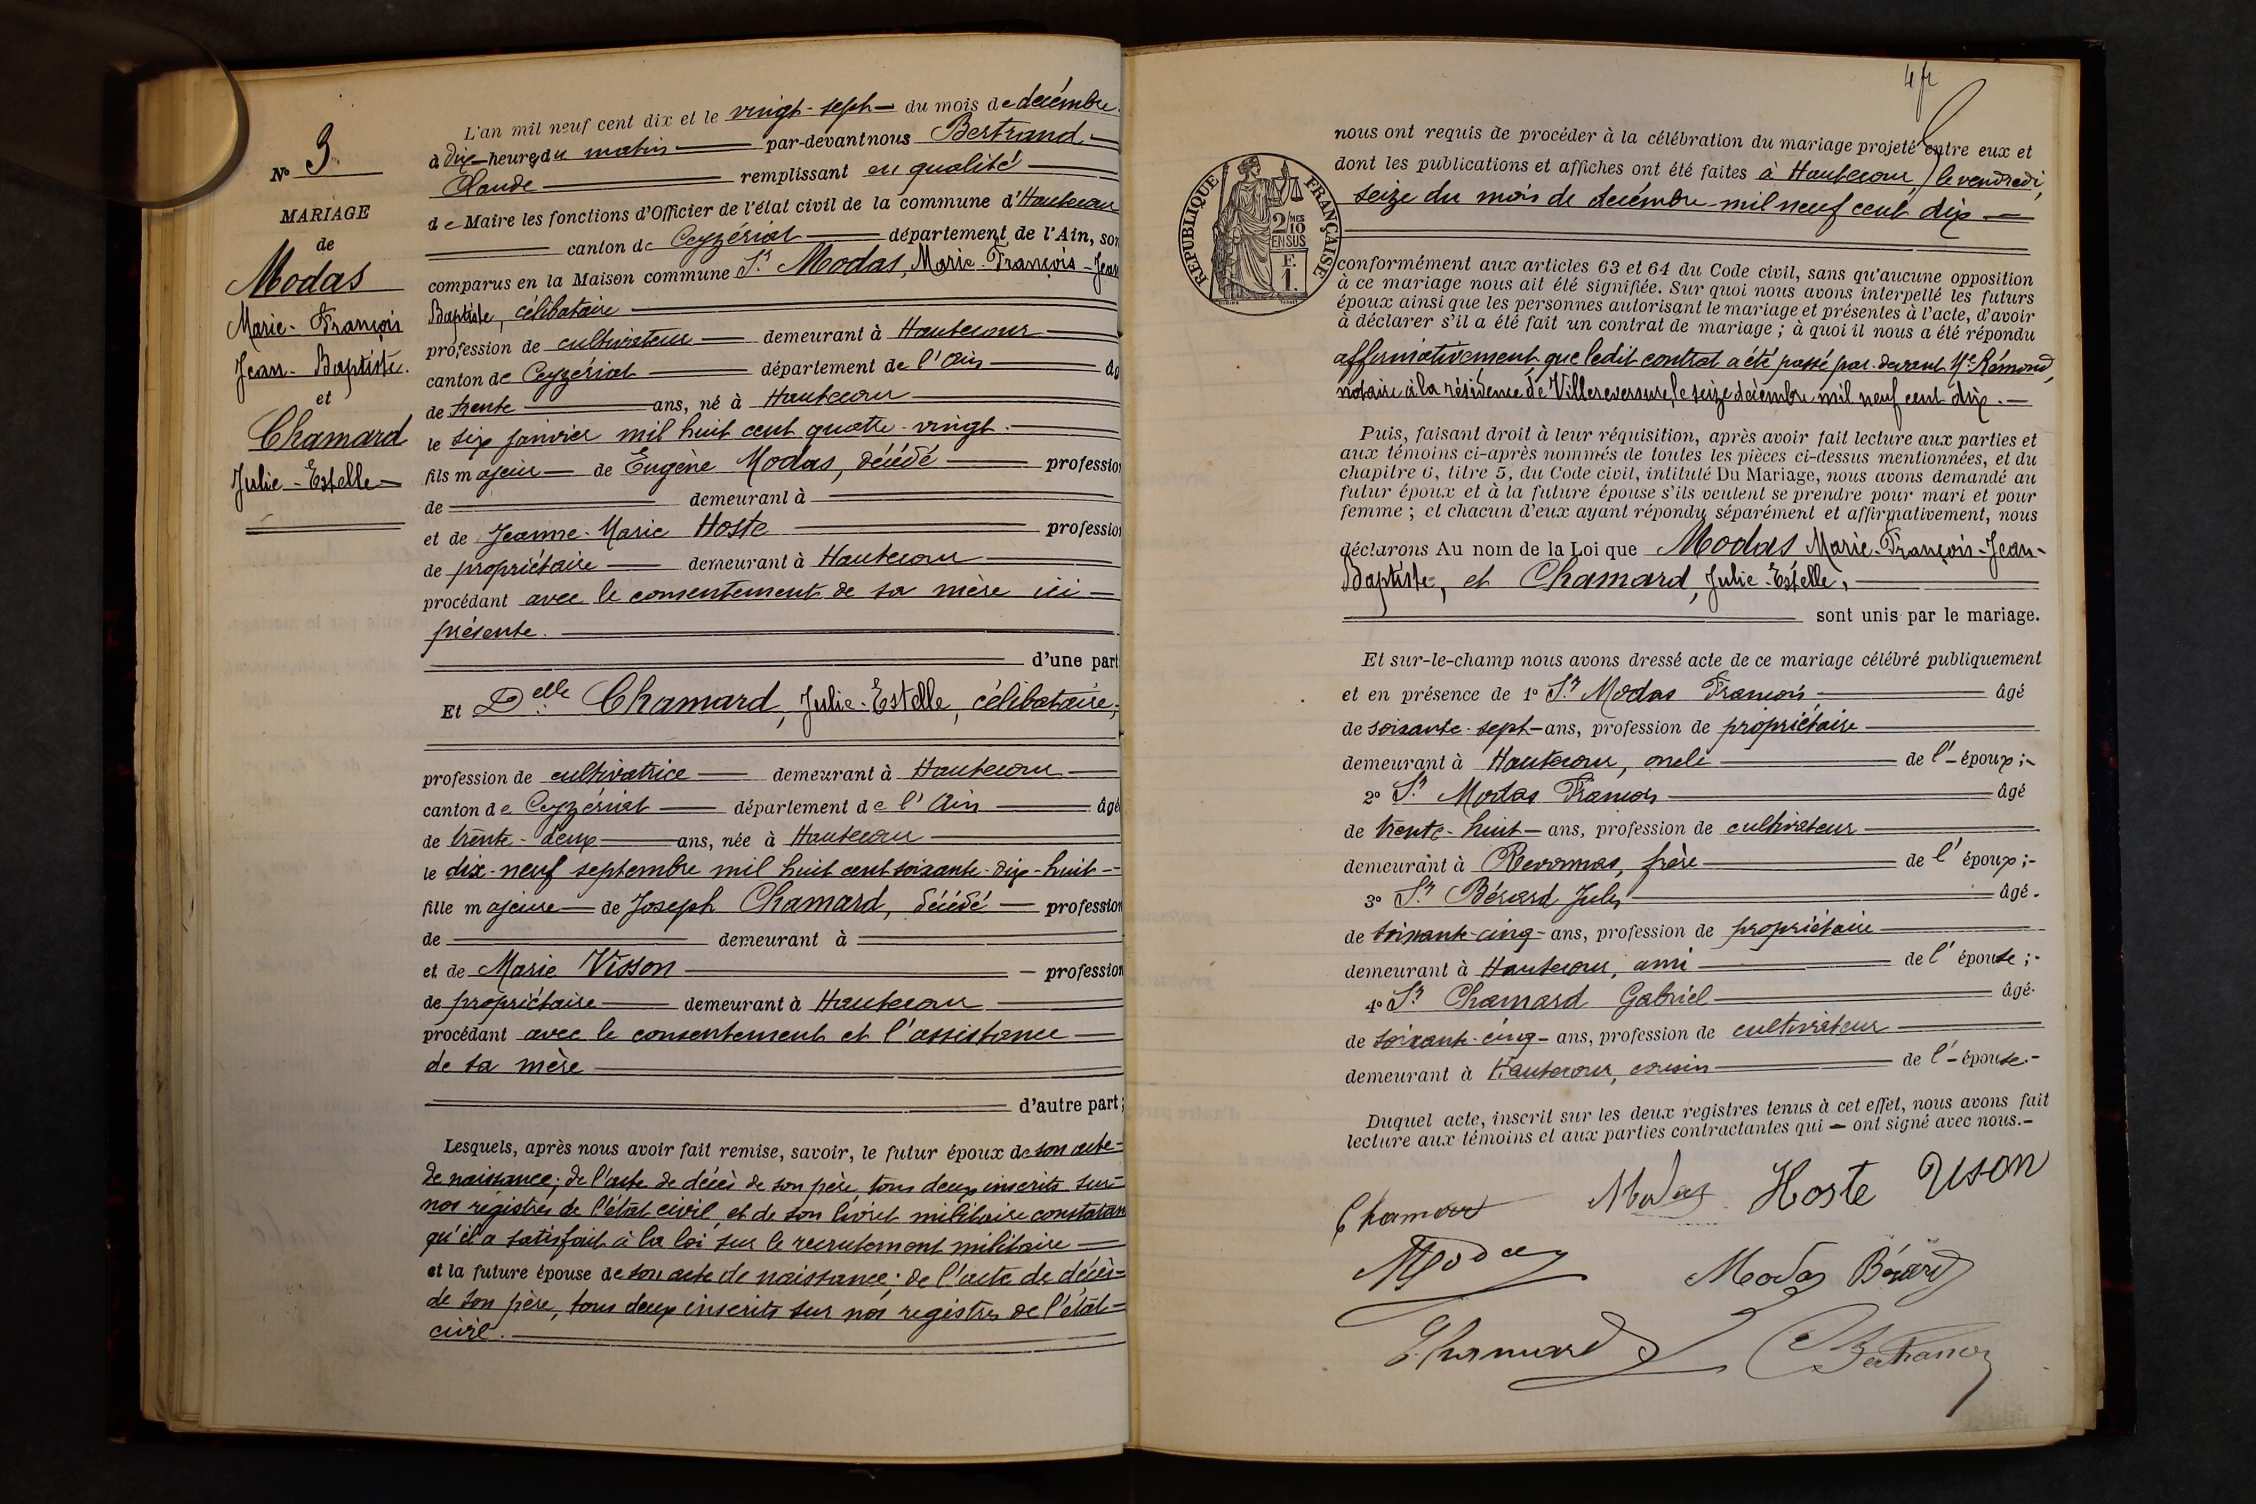 N° 3
MARIAGE
de
Modas
Marie-François
Jean-Baptiste.
et
Chamard
Julie-Estelle
L'an mil neuf cent dix et le vingt-sept du mois de décembre
à dix heures du matin par-devant nous Bertrand
Claude remplissant en qualité
de Maire les fonctions d'Officier de l'état civil de la commune d'Hautecour
canton de Ceyzériat département de l'Ain, son
comparus en la Maison commune Sr Modas, Marie-François-Jean
Baptiste, célibataire
profession de cultivateur demeurant à Hautecour
canton de Ceyzériat département de l'Ain âg
de trente ans, né à Hautecour
le six janvier mil huit cent quatre-vingt.
fils majeur de Eugène Modas, décédé profession
de demeurant à
et de Jeanne-Marie Hoste profession
de propriétaire demeurant à Hautecour
procédant avec le consentement de sa mère ici
présente.
d'une part
Et Delle Chamard, Julie-Estelle, célibataire,
profession de cultivatrice demeurant à Hautecour
canton de Ceyzériat département de l'Ain âgé
de trente-deux ans, née à Hautecour
le dix-neuf septembre mil huit cent soixante-dix-huit
fille majeure de Joseph Chamard, décédé profession
de demeurant à
et de Marie Visson profession
de propriétaire demeurant à Hautecour
procédant avec le consentement et l'assistance
de sa mère
d'autre part;
Lesquels, après nous avoir fait remise, savoir, le futur époux de son acte
de naissance; de l'acte de décès de son père, tous deux inscrits sur
nos registres de l'état civil, et de son livret militaire constatan
qu'il a satisfait à la loi sur le recrutement militaire
et la future épouse de son acte de naissance; de l'acte de décès
de son père, tous deux inscrits sur nos registres de l'état
civil.
4 fr
nous ont requis de procéder à la célébration du mariage projeté entre eux et
dont les publications et affiches ont été faites à Hautecour, le vendredi,
seize du mois de décembre mil neuf cent dix
RÉPUBLIQUE FRANÇAISE
2/10 MES
EN SUS
F.
1.
conformément aux articles 63 et 64 du Code civil, sans qu'aucune opposition
à ce mariage nous ait été signifiée. Sur quoi nous avons interpellé les futurs
époux ainsi que les personnes autorisant le mariage et présentes à l'acte, d'avoir
à déclarer s'il a été fait un contrat de mariage; à quoi il nous a été répondu
affirmativement, que ledit contrat a été passé par-devant Me Rémond,
notaire à la résidence de Villereversure, le seize décembre mil neuf cent dix.
Puis, faisant droit à leur réquisition, après avoir fait lecture aux parties et
aux témoins ci-après nommés de toutes les pièces ci-dessus mentionnées, et du
chapitre 6, titre 5, du Code civil, intitulé Du Mariage, nous avons demandé au
futur époux et à la future épouse s'ils veulent se prendre pour mari et pour
femme; et chacun d'eux ayant répondu séparément et affirmativement, nous
déclarons Au nom de la Loi que Modas Marie-François-Jean-
Baptiste, et Chamard, Julie-Estelle,
sont unis par le mariage.
Et sur-le-champ nous avons dressé acte de ce mariage célébré publiquement
et en présence de 1° Sr Modas François, âgé
de soixante-sept ans, profession de propriétaire
demeurant à Hautecour, oncle de l'époux;
2° Sr Modas François âgé
de trente-huit ans, profession de cultivateur
demeurant à Revonnas, frère de l'époux;
3° Sr Bérard Jules âgé
de soixante-cinq ans, profession de propriétaire
demeurant à Hautecour, ami de l'épouse;
4° Sr Chamard Gabriel âgé
de soixante-cinq ans, profession de cultivateur
demeurant à Hautecour, cousin de l'épouse.
Duquel acte, inscrit sur les deux registres tenus à cet effet, nous avons fait
lecture aux témoins et aux parties contractantes qui ont signé avec nous.
Chamard Modas Hoste Vison
Modas Modas Bérard
Chamard Bertrand